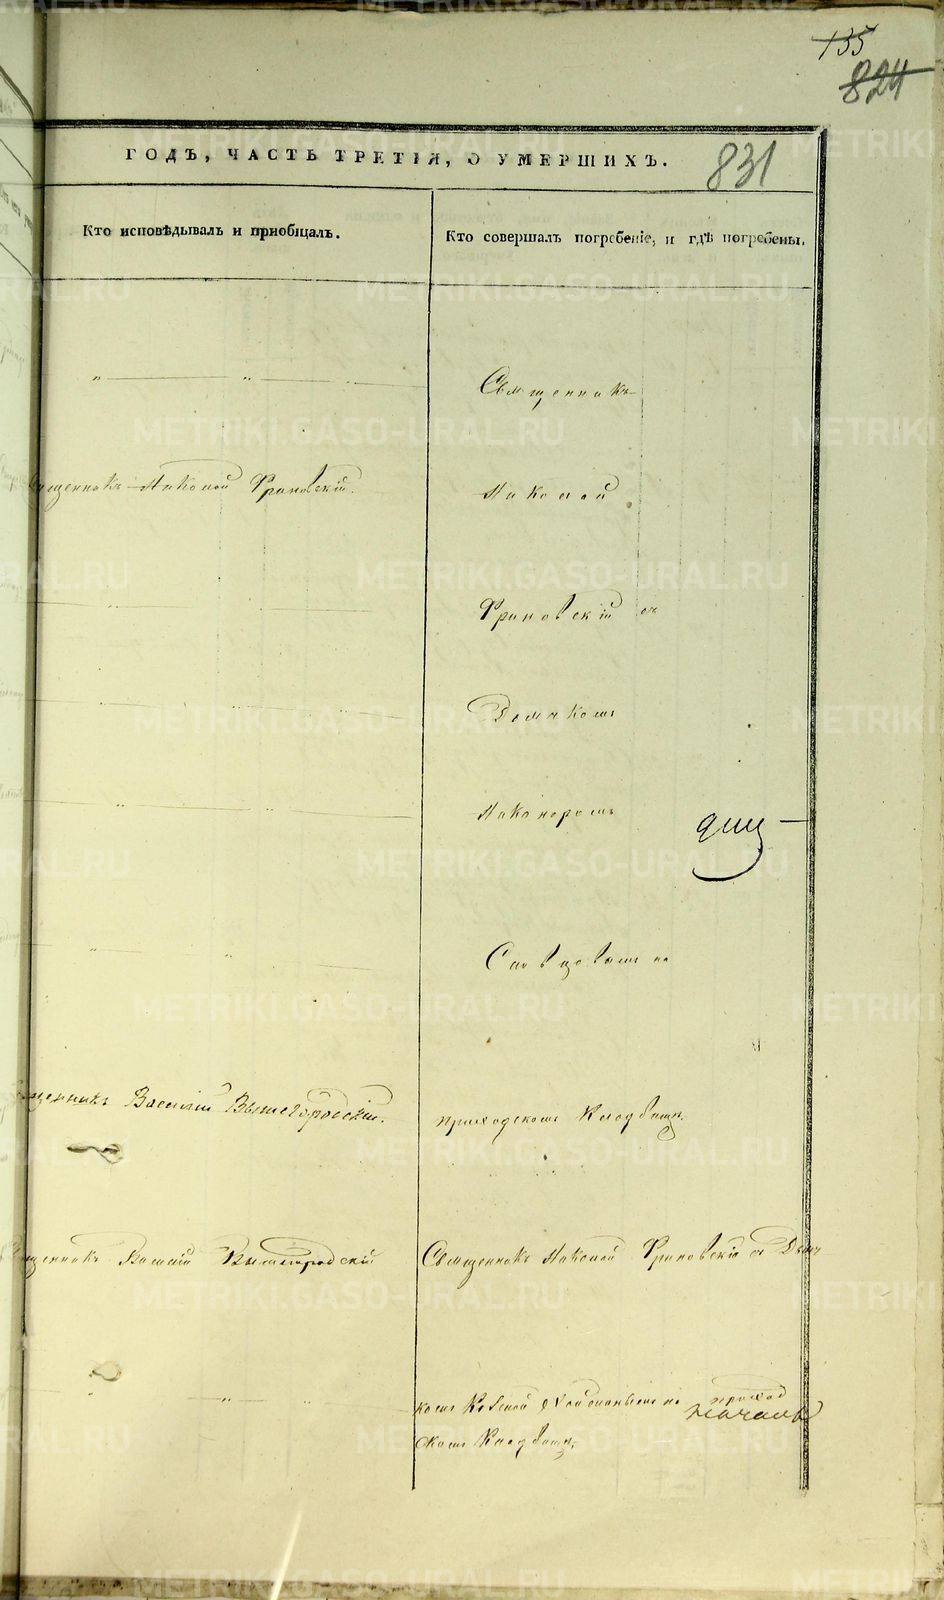 135
824
ГОДЪ, ЧАСТЬ ТРЕТІЯ, О УМЕРШИХЪ. 831
Кто исповѣдывалъ и пріобщалъ.
Кто совершалъ погребеніе, и гдѣ погребены.
Священникъ
Николай
священникъ Николай Франовскій.
Франовскій съ
Дьячкомъ
Никаноромъ
Словцовымъ на
щенникъ Василій Вышегородскій.
приходскомъ кладбищѣ.
щенникъ Василій Вышегородскій
Священникъ Николай Франовскій съ Дьяч
комъ на приход
скомъ кладбищѣ.
METRIKI.GASO-URAL.RU